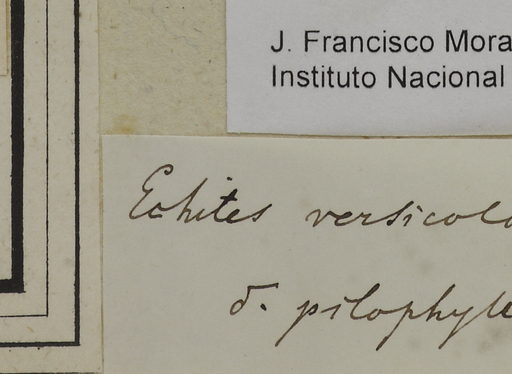 J. Francisco Mora
Instituto Nacional
Echites versicolo
δ. pilophyll